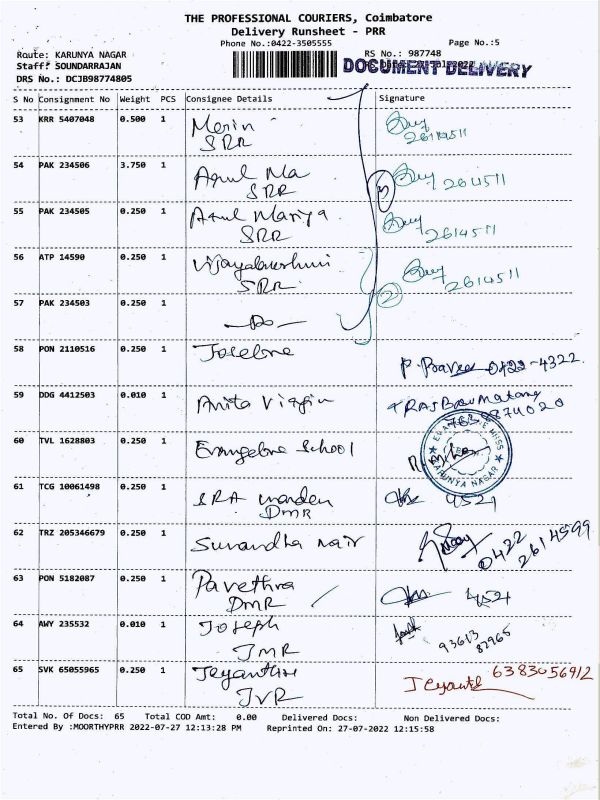 THE PROFESSIONAL COURIERS, Coimbatore
Delivery Runsheet - PRR
Phone No.:0422-3505555 Page No.:5
Route: KARUNYA NAGAR RS No.: 987748
Staff: SOUNDARRAJAN DOCUMENT DELIVERY
DRS No.: DCJB98774805
S No Consignment No Weight PCS Consignee Details Signature
53 KRR 5407048 0.500 1 Merin
SRR
54 PAK 234506 3.750 1 Arul Ma 2614511
SRR
55 PAK 234505 0.250 1 Arul Mariya
SRR 2614511
56 ATP 14590 0.250 1 Vijayalakshmi
SRR 2614511
57 PAK 234503 0.250 1 -Do- 2
58 PON 2110516 0.250 1 0422-4322
59 DDG 4412503 0.010 1 Anita Virgin
60 TVL 1628803 0.250 1 Evangeline School
KARUNYA NAGAR
61 TCG 10061498 0.250 1 SRA warden 4521
DMR
62 TRZ 205346679 0.250 1 Sunandha nair 0422
2614599
63 PON 5182087 0.250 1 Pavethra 4521
DMR
64 AWY 235532 0.010 1 Joseph 93613
JMR 82965
65 SVK 65055965 0.250 1 6383056912
JVR
Total No. Of Docs: 65 Total COD Amt: 0.00 Delivered Docs: Non Delivered Docs:
Entered By :MOORTHYPRR 2022-07-27 12:13:28 PM Reprinted On: 27-07-2022 12:15:58